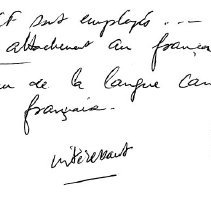 CF sont employés ...
attachement au français
de la langue
français.
intéressant